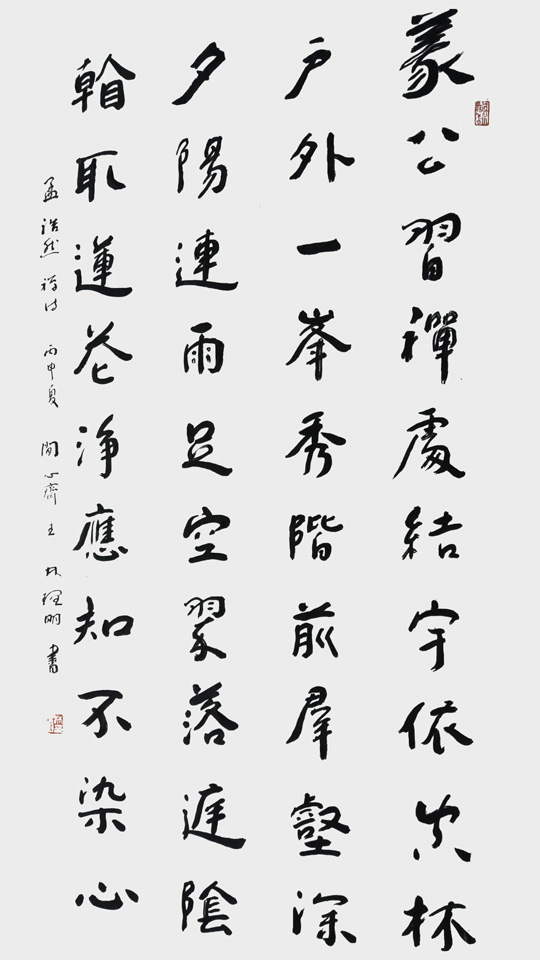 義公習禪處結宇依空林
戶外一峯秀階前羣壑深
夕陽連雨足空翠落庭陰
看取蓮花淨應知不染心
孟浩然禪詩 丙申夏 閒心齋主 林理明書